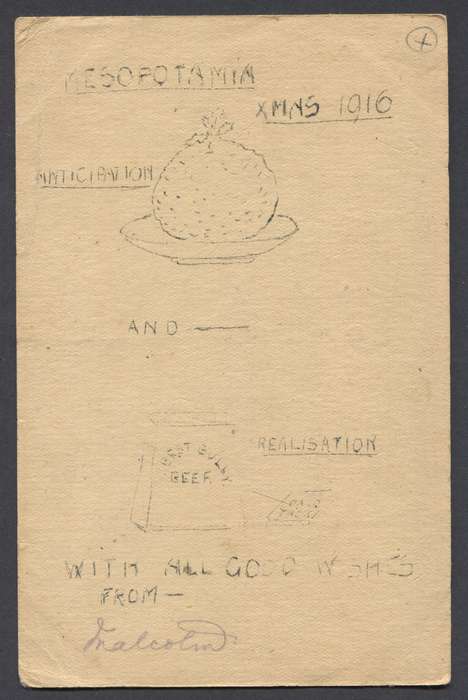 MESOPOTAMIA
XMAS 1916
ANTICIPATION
AND —
REALISATION
BEST BULLY
BEEF.
WITH ALL GOOD WISHES
FROM —
Malcolm